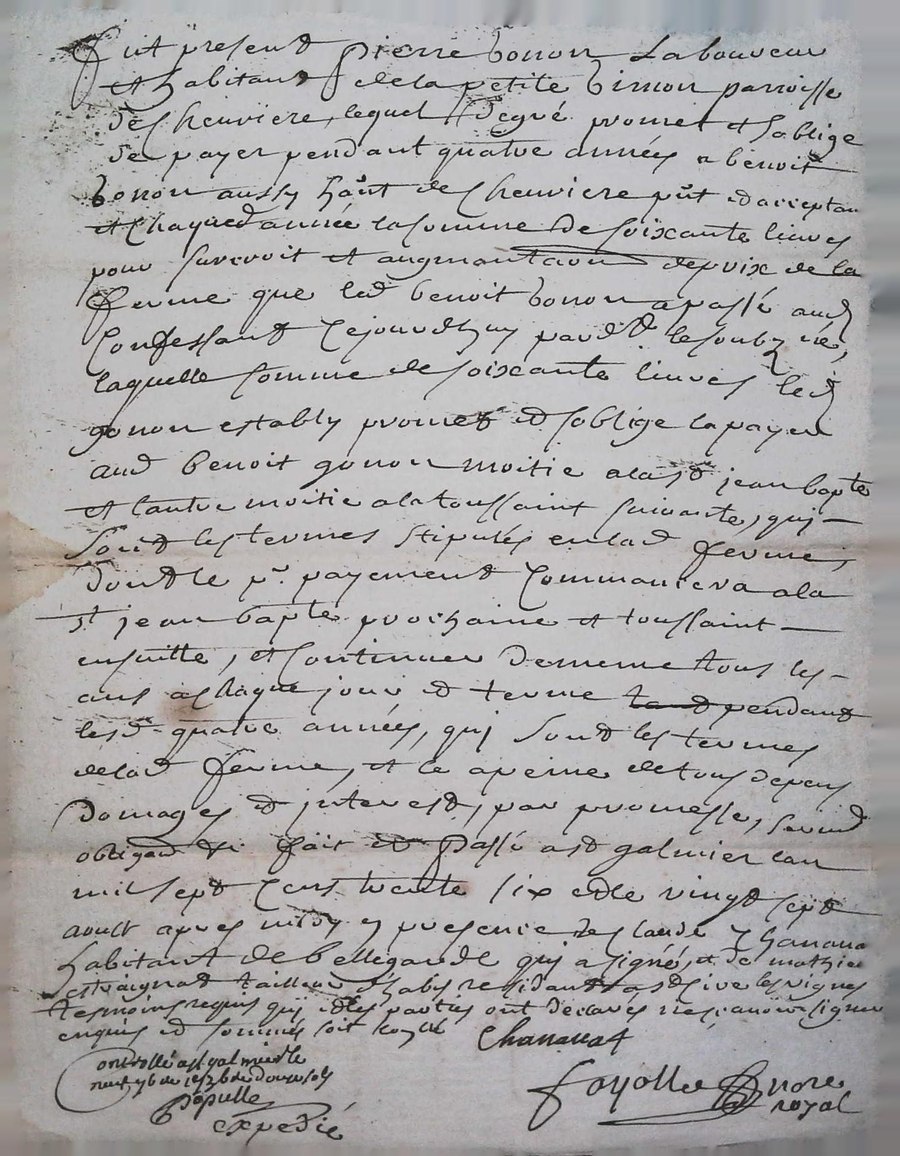 fut present pierre gonon Laboureur
et habitant de la petite gimon parroisse
de Cheuriere, lequel degré promet et soblige
de payer pendant quatre années a benoit
gonon aussy ha͠nt de Cheuriere pn̄t et acceptan
et Chaque d année la somme de soixante liures
pour surcroit et augmantaon de prix de la
ferme que lad benoit gonon a passé aud
Confessant Cejourdhuy pard le soub né,
laquelle somme de soixante liures led
gonon estably promet et soblige la payer
aud benoit gonon moitie a la st jean bapte
et lautre moitie a la toussaint suiuante, qui
sont les termes stipulés en lad ferme,
dont le pr. payement Commancera a la
st jean bapte prochaine et toussaint
ensuitte, et Continuer de meme tous les
ans a chaque jour et terme pendant
lesd quatre années, qui sont les termes
de lad ferme, et ce a peine de tous depens
domages et interest, par promesse, serm
obligaō fait et Passé a st galmier lan
mil sept Cens trente six et le vingt sept
aoust apres midy en presence de Claude Chanaua
habitant de bellegarde qui a signé, et de mathieu
tailleur dhabis residant a st les vignes
tesmoins requis qui et les parties ont declarés ne scauoir signer
enquis et sommés soit
Chanauat
Controllé a st galmier le
neuf 7bre 1736
expedié
fayolle nore
royal